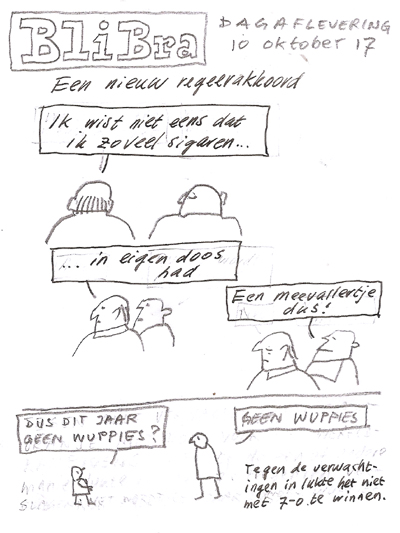 BLiBra
DAGAFLEVERING
10 oktober 17
Een nieuw regeerakkoord
Ik wist niet eens dat
ik zoveel sigaren...
... in eigen doos
had
Een meevallertje
dus!
DUS DIT JAAR
GEEN WUPPIES?
GEEN WUPPIES
Tegen de verwacht-
ingen in lukte het niet
met 7-0 te winnen.